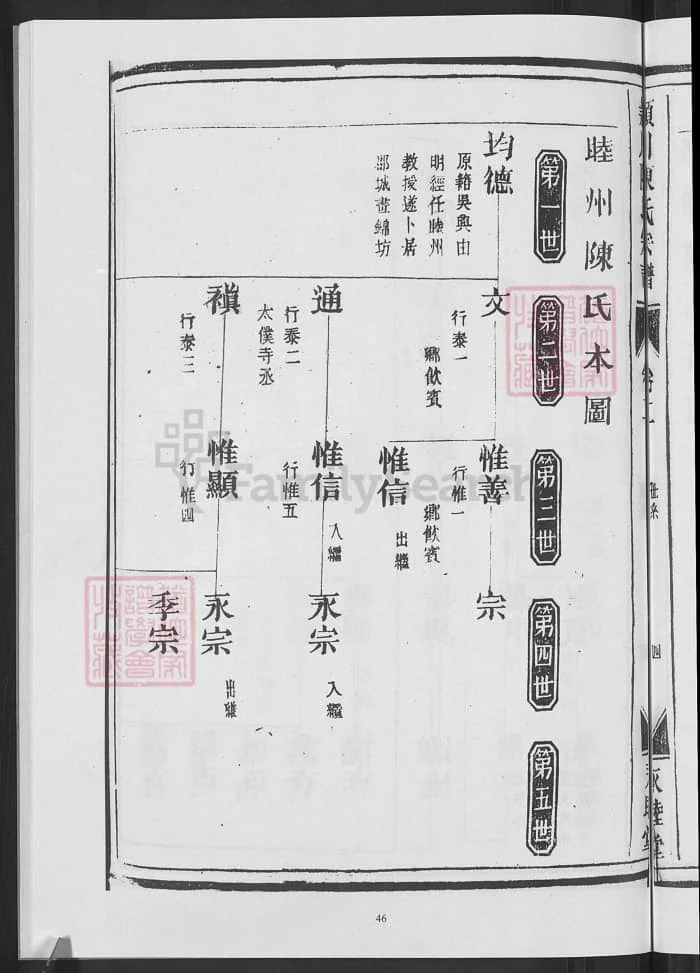 睦州陳氏本圖
第一世
第二世
第三世
第四世
第五世
均德
原籍吳興由
明經任睦州
教授遂卜居
郡城晝錦坊
文
行泰一
鄉飲賓
通
行泰二
太僕寺丞
禛
行泰三
惟善
行惟一
鄉飲賓
惟信
出繼
惟信
入繼
行惟五
惟顯
行惟四
宗
永宗
入繼
永宗
出繼
季宗
潁川陳氏宗譜
卷二
世系
四
永睦堂
FamilySearch
46